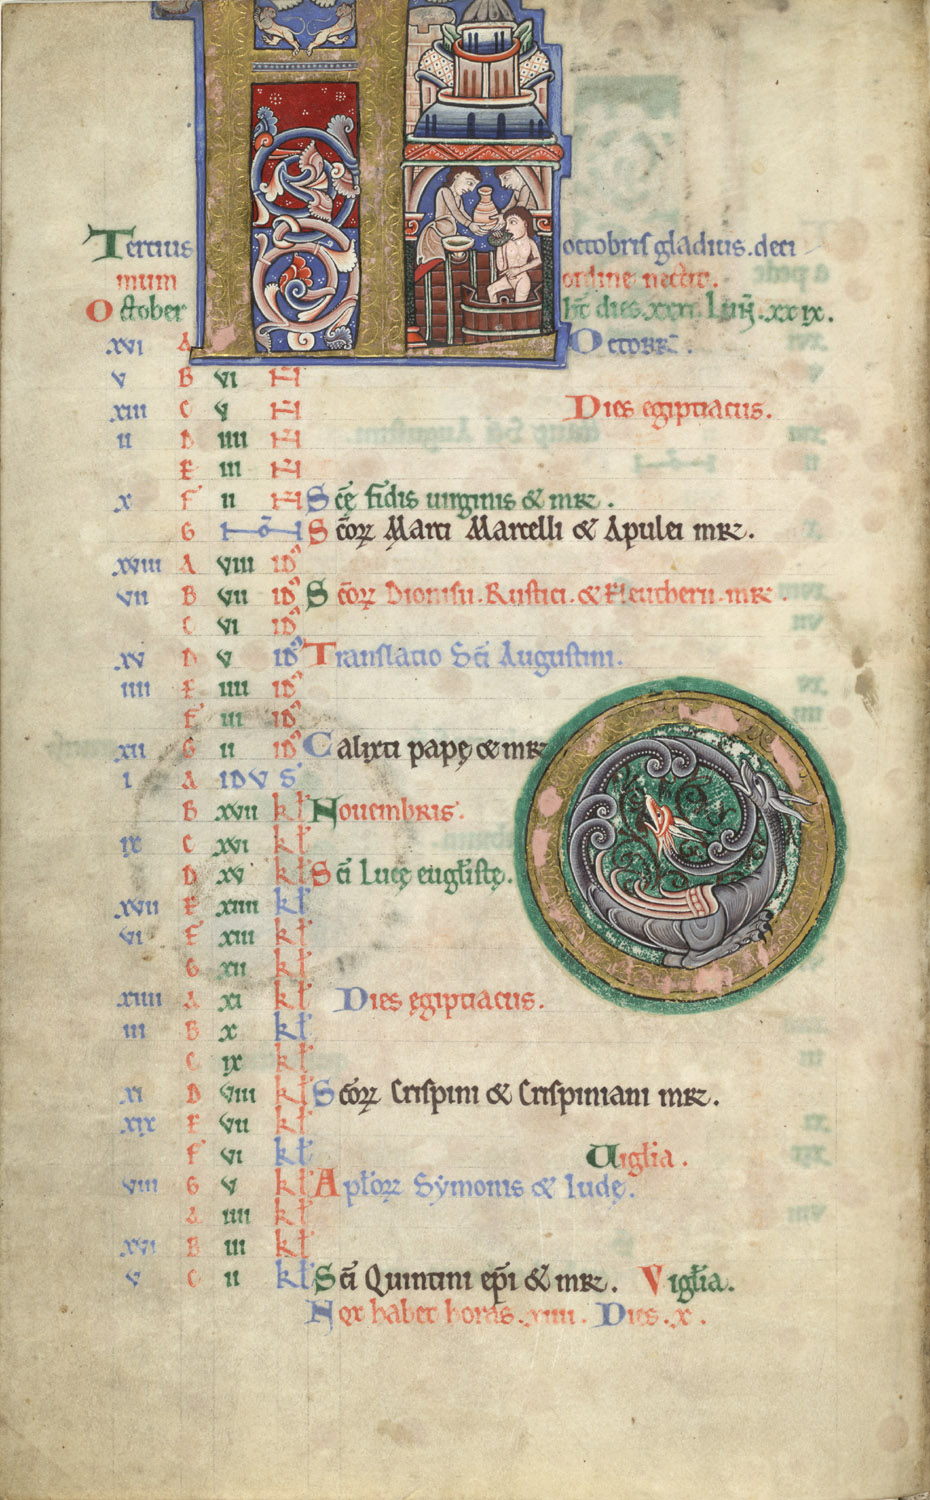 Tercius octobris gladius. deci
mum ordine nectit.
October ht dies. xxxi. Lun. xxix.
xvi A Octobr.
v B vi N
xiii C v N Dies egiptiacus.
ii D iiii N
E iii N
x F ii N Scę fidis uirginis & mr.
G No Scorꝝ Marci Marcelli & Apulei mr.
xviii A viii id
vii B vii id Scorꝝ Dionisii. Rustici. & Eleutherii. mr.
C vi id
xv D v id Translatio Sci Augustini.
iiii E iiii id
F iii id
xii G ii id Calixti papę & mr
i A idus
B xvii kl Nouembris.
ix C xvi kl
D xv kl Sci Lucę euglistę.
xvii E xiiii kl
vi F xiii kl
G xii kl
xiiii A xi kl Dies egiptiacus.
iii B x kl
C ix kl
xi D viii kl Scorꝝ Crispini & Crispiniani mr.
xix E vii kl
F vi kl Uiglia.
viii G v kl Aplorꝝ Symonis & Iudę.
A iiii kl
xvi B iii kl
v C ii kl Sci Quintini epi & mr. Viglia.
Nox habet horas. xiiii. Dies. x.